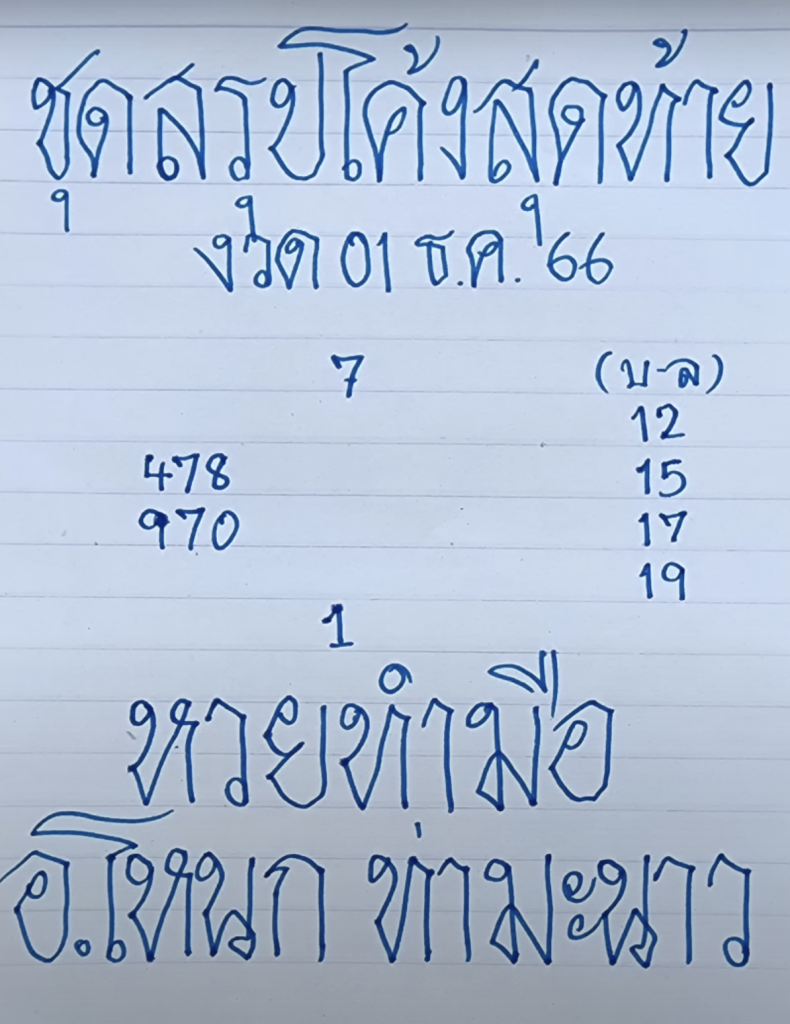 ชุดสรุปโค้งสุดท้าย
งวด 01 ธ.ค. '66
7
(บ-ล)
12
478
15
970
17
19
1
หวยทำมือ
อ.โหนก ท่ามะนาว